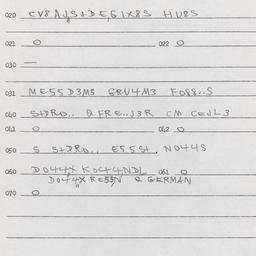 020 CV8 AJS+DEG1X8S HU8S
021 O 022 O
030 —
031 ME55D3M3 GRU4M3 FO88..S
040 S+DRO.. & FRE..J3R CM CEJL3
041 O 042 O
050 S S+DRO.. E55S+. NO44S
060 DO44X KOC44NDL 061 O
DO44X RE55N & GERMAN
070 O